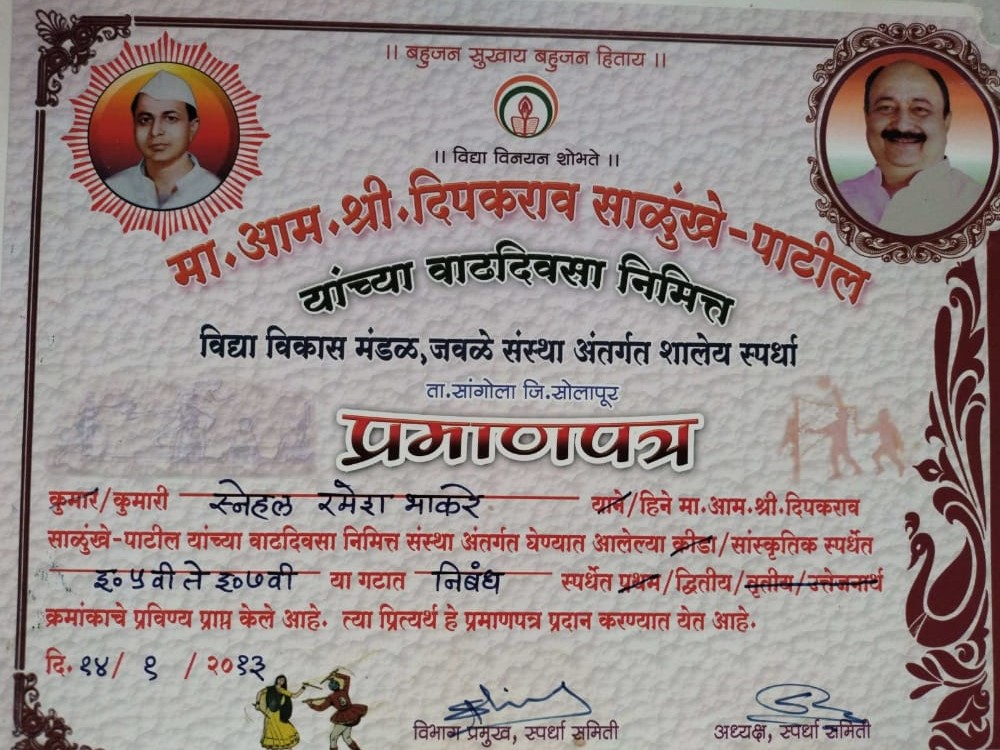 ।। बहुजन सुखाय बहुजन हिताय ।।
।। विद्या विनयन शोभते ।।
मा.आम.श्री.दिपकराव साळुंखे-पाटील
यांच्या वाढदिवसा निमित्त
विद्या विकास मंडळ,जवळे संस्था अंतर्गत शालेय स्पर्धा
ता.सांगोला जि.सोलापूर
प्रमाणपत्र
कुमार/कुमारी स्नेहल रमेश भाकरे याने/हिने मा.आम.श्री.दिपकराव
साळुंखे-पाटील यांच्या वाढदिवसा निमित्त संस्था अंतर्गत घेण्यात आलेल्या क्रीडा/सांस्कृतिक स्पर्धेत
इ.५वी ते इ.७वी या गटात निबंध स्पर्धेत प्रथम/द्वितीय/तृतीय/उत्तेजनार्थ
क्रमांकाचे प्रविण्य प्राप्त केले आहे. त्या प्रित्यर्थ हे प्रमाणपत्र प्रदान करण्यात येत आहे.
दि.१४/ १ /२०१३
विभाग प्रमुख, स्पर्धा समिती
अध्यक्ष, स्पर्धा समिती